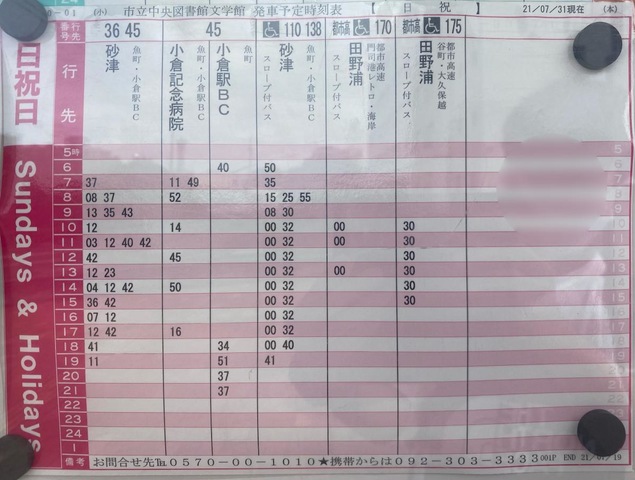 24
0-01 (小) 市立中央図書館文学館 発車予定時刻表 【 日 祝 】 21/07/31現在 (木)
行先番号 36 45 45 110 138 都市高 170 都市高 175
行先 砂津 魚町・小倉駅BC 小倉記念病院 魚町・小倉駅BC 小倉駅BC 魚町 スロープ付バス 砂津 魚町・小倉駅BC スロープ付バス 田野浦 都市高速 門司港レトロ・海岸 スロープ付バス 田野浦 都市高速 谷町・大久保越
日祝日
Sundays & Holidays
5時 5
6 40 50 6
7 37 11 49 35
8 08 37 52 15 25 55
9 13 35 43 08 30
10 12 14 00 32 00 30
11 03 12 40 42 00 32 00 30 11
12 42 45 00 32 30 12
13 12 23 00 32 00 30 13
14 04 12 42 50 00 32 30 14
15 36 42 00 32 30 15
16 07 12 00 32 16
17 12 42 16 00 32 17
18 41 34 00 40 18
19 11 51 41 19
20 37 20
21 37 21
22 22
23 23
24
1
備考 お問合せ先℡0570-00-1010★携帯からは092-303-3333 001P END 21/07/19